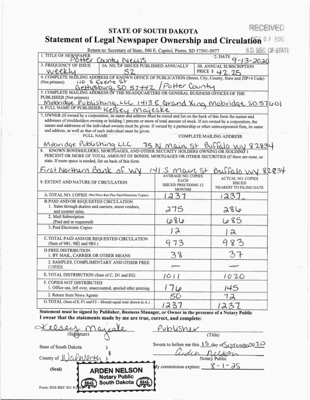 RECEIVED
STATE OF SOUTH DAKOTA
Statement of Legal Newspaper Ownership and Circulation
S.D. SEC. OF STATE
Return to: Secretary of State, 500 E. Capitol, Pierre, SD 57501-5077
1. TITLE OF NEWSPAPER
Potter County News
2. DATE
9-13-2020
3. FREQUENCY OF ISSUE
Weekly
3A. NO. OF ISSUES PUBLISHED ANNUALLY
52
3B. ANNUAL SUBSCRIPTION
PRICE $ 42.25
4. COMPLETE MAILING ADDRESS OF KNOWN OFFICE OF PUBLICATION (Street, City, County, State and ZIP+4 Code)
(Not printers)
110 S Exene St
Gettysburg, SD 57442 / Potter County
5. COMPLETE MAILING ADDRESS OF THE HEADQUARTERS OR GENERAL BUSINESS OFFICES OF THE
PUBLISHER (Not printer)
Mobridge Publishing, LLC 1413 E Grand Xing, Mobridge, SD 57601
6. FULL NAME OF PUBLISHER:
Kelsey Majeske
7. OWNER (If owned by a corporation, its name and address must be stated and list on the back of this form the names and
addresses of stockholders owning or holding 1 percent or more of total amount of stock. If not owned by a corporation, the
names and addresses of the individual owners must be given. If owned by a partnership or other unincorporated firm, its name
and address, as well as that of each individual must be given.
FULL NAME
COMPLETE MAILING ADDRESS
Mobridge Publishing LLC 75 N Main St Buffalo WY 82834
8. KNOWN BONDHOLDERS, MORTGAGEES, AND OTHER SECURITY HOLDERS OWNING OR HOLDING 1
PERCENT OR MORE OF TOTAL AMOUNT OF BONDS, MORTGAGES OR OTHER SECURITIES (If there are none, so
state. If more space is needed, list on back of this form.
First Northern Bank of WY 141 S Main St Buffalo WY 82834
9. EXTENT AND NATURE OF CIRCULATION
AVERAGE NO. COPIES
EACH
ISSUED PRECEDING 12
MONTHS
ACTUAL NO. COPIES
ISSUED
NEAREST TO FILING DATE
A. TOTAL NO. COPIES
1237
1237
B. PAID AND/OR REQUESTED CIRCULATION
1. Sales through dealers and carriers, street vendors,
and counter sales.
275
286
2. Mail Subscription
(Paid and or requested)
686
685
3. Paid Electronic Copies
12
12
C. TOTAL PAID AND/OR REQUESTED CIRCULATION
(Sum of 9B1, 9B2 and 9B3.)
973
983
D. FREE DISTRIBUTION
1. BY MAIL, CARRIER OR OTHER MEANS
38
37
2. SAMPLES, COMPLIMENTARY AND OTHER FREE
COPIES
E. TOTAL DISTRIBUTION (Sum of C, D1 and D2)
1011
1020
F. COPIES NOT DISTRIBUTED
1. Office use, left over, unaccounted, spoiled after printing
176
145
2. Return from News Agents
50
72
G. TOTAL (Sum of E, F1 and F2 - Should equal total shown in A.)
1237
1237
Statement must be signed by Publisher, Business Manager, or Owner in the presence of a Notary Public
I swear that the statements made by me are true, correct, and complete:
Kelsey Majeske
Publisher
(Signature)
(Title)
State of South Dakota
Sworn to before me this 15 day of September 2020
Arden Nelson
County of Walworth
Notary Public
(Seal)
ARDEN NELSON
Notary Public
South Dakota
SEAL
SEAL
My commission expires: 8-1-25